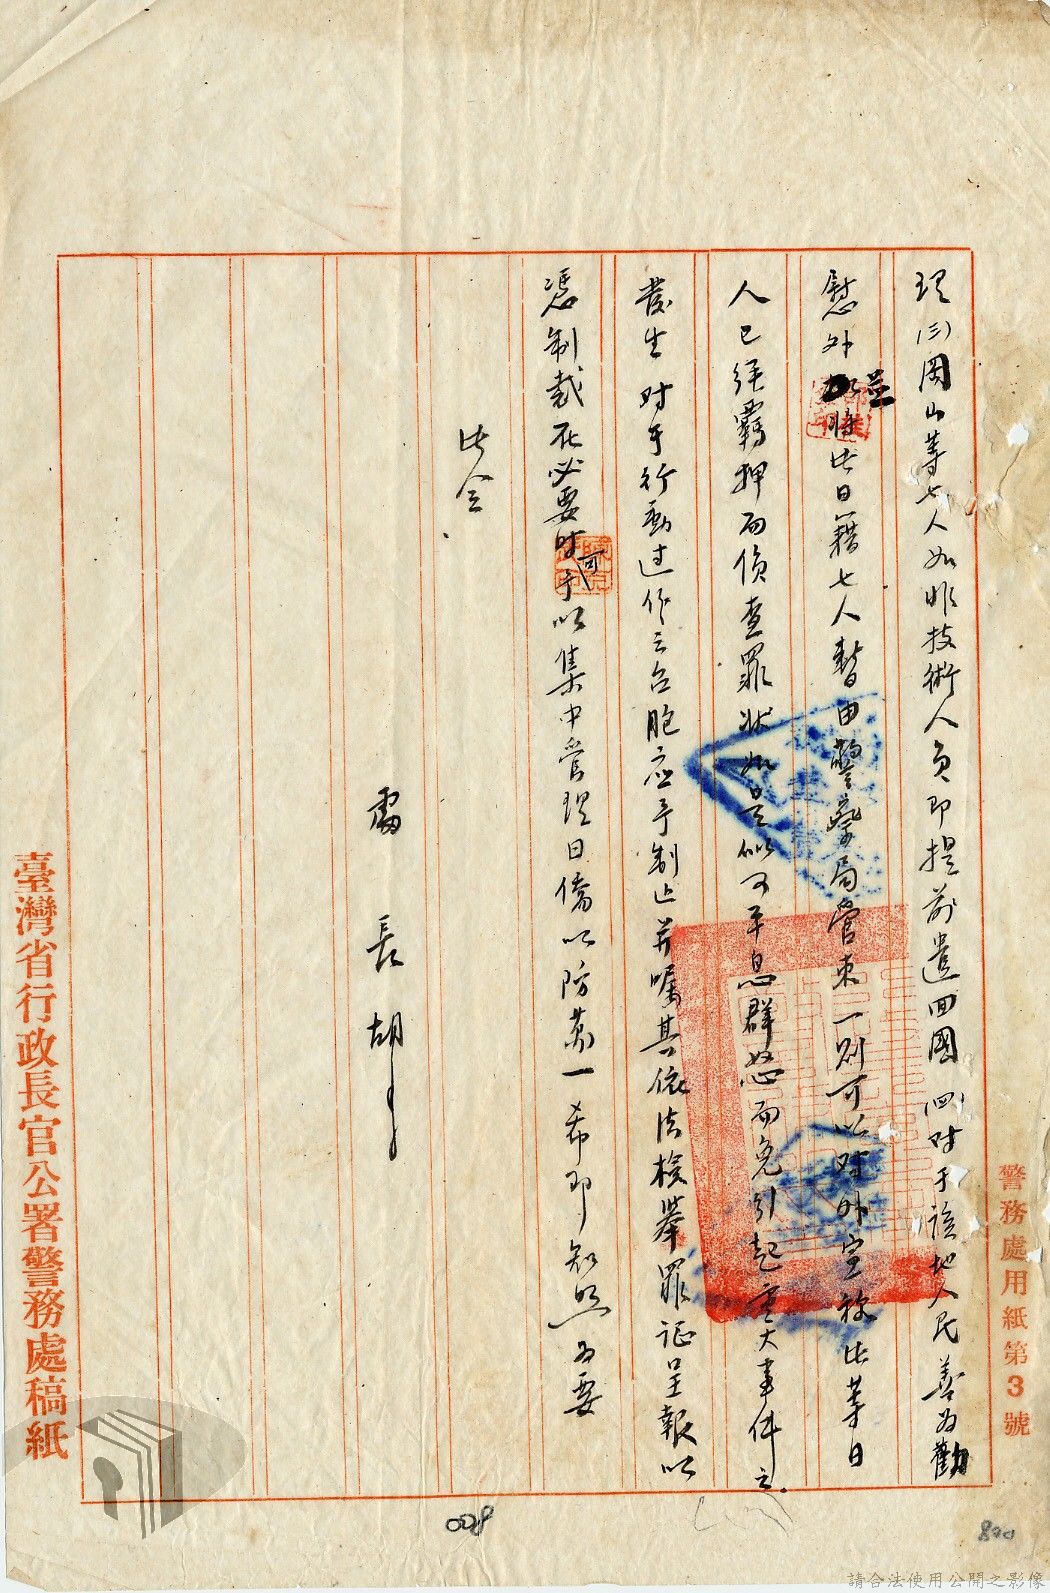 警務處用紙第3號
理㈢岡山等七人如非技術人員即提前遣回國㈣对于該地人民善為勸
慰外並將此日籍七人暫由警察局管束一則可以对外宣称此等日
人已經羈押而偵查罪狀如是似可平息群怒而免引起重大事件之
發生对于行動过份之台胞应予制止并嘱其依法檢舉罪证呈報以
憑制裁在必要时可予以集中管理日僑以防萬一希即知照為要
此令
處長胡
臺灣省行政長官公署警務處稿紙
008
800
請合法使用公開之影像